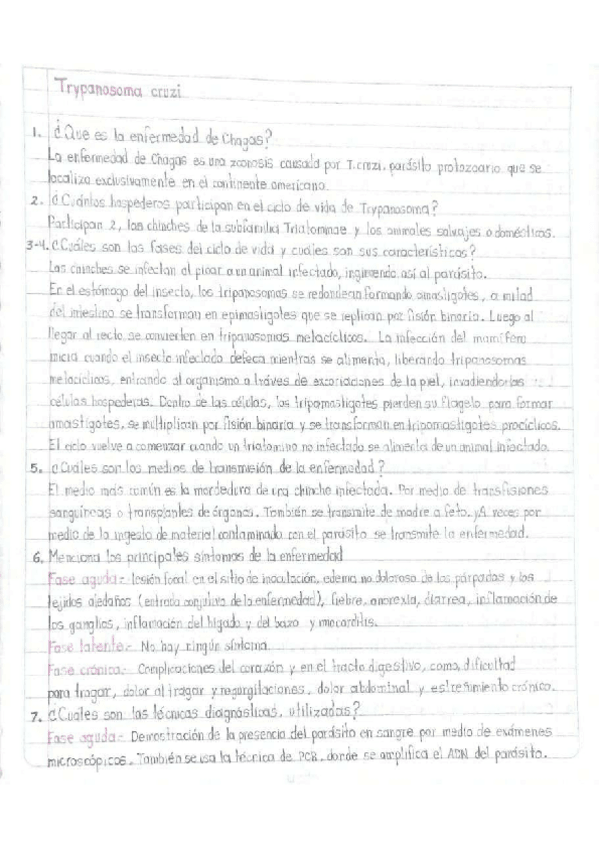 Trypanosoma cruzi
1. ¿Que es la enfermedad de Chagas?
La enfermedad de Chagas es una zoonosis causada por T.cruzi, parásito protozoario que se
localiza exclusivamente en el continente americano.
2. ¿Cuántos hospederos participan en el ciclo de vida de Trypanosoma?
Participan 2, las chinches de la subfamilia Triatominae y los animales salvajes o domésticos.
3-4. ¿Cuáles son las fases del ciclo de vida y cuáles son sus características?
Las chinches se infectan al picar a un animal infectado, ingiriendo así al parásito.
En el estómago del insecto, los tripanosomas se redondean formando amastigotes, a mitad
del intestino se transforman en epimastigotes que se replican por fisión binaria. Luego al
llegar al recto se convierten en tripanosomas metacíclicos. La infección del mamífero
inicia cuando el insecto infectado defeca mientras se alimenta, liberando tripanosomas
metacíclicos, entrando al organismo a tráves de excoriaciones de la piel, invadiendo las
células hospederas. Dentro de las células, los tripomastigotes pierden su flagelo para formar
amastigotes, se multiplican por fisión binaria y se transforman en tripomastigotes procíclicos.
El ciclo vuelve a comenzar cuando un triatomino no infectado se alimenta de un animal infectado.
5. ¿Cuáles son los medios de transmisión de la enfermedad?
El medio más común es la mordedura de una chinche infectada. Por medio de transfusiones
sanguíneas o transplantes de órganos. También se transmite de madre a feto. y A veces por
medio de la ingesta de material contaminado con el parásito se transmite la enfermedad.
6. Menciona los principales síntomas de la enfermedad
Fase aguda.- lesión focal en el sitio de inoculación, edema no doloroso de los párpados y los
tejidos aledaños (entrada conjuntiva de la enfermedad), fiebre, anorexia, diarrea, inflamación de
los ganglios, inflamación del hígado y del bazo y miocarditis.
Fase latente.- No hay ningún síntoma.
Fase crónica.- Complicaciones del corazón y en el tracto digestivo, como, dificultad
para tragar, dolor al tragar y regurgitaciones, dolor abdominal y estreñimiento crónico.
7. ¿Cuáles son las técnicas diagnósticas, utilizadas?
Fase aguda.- Demostración de la presencia del parásito en sangre por medio de exámenes
microscópicos. También se usa la técnica de PCR, donde se amplifica el ADN del parásito.